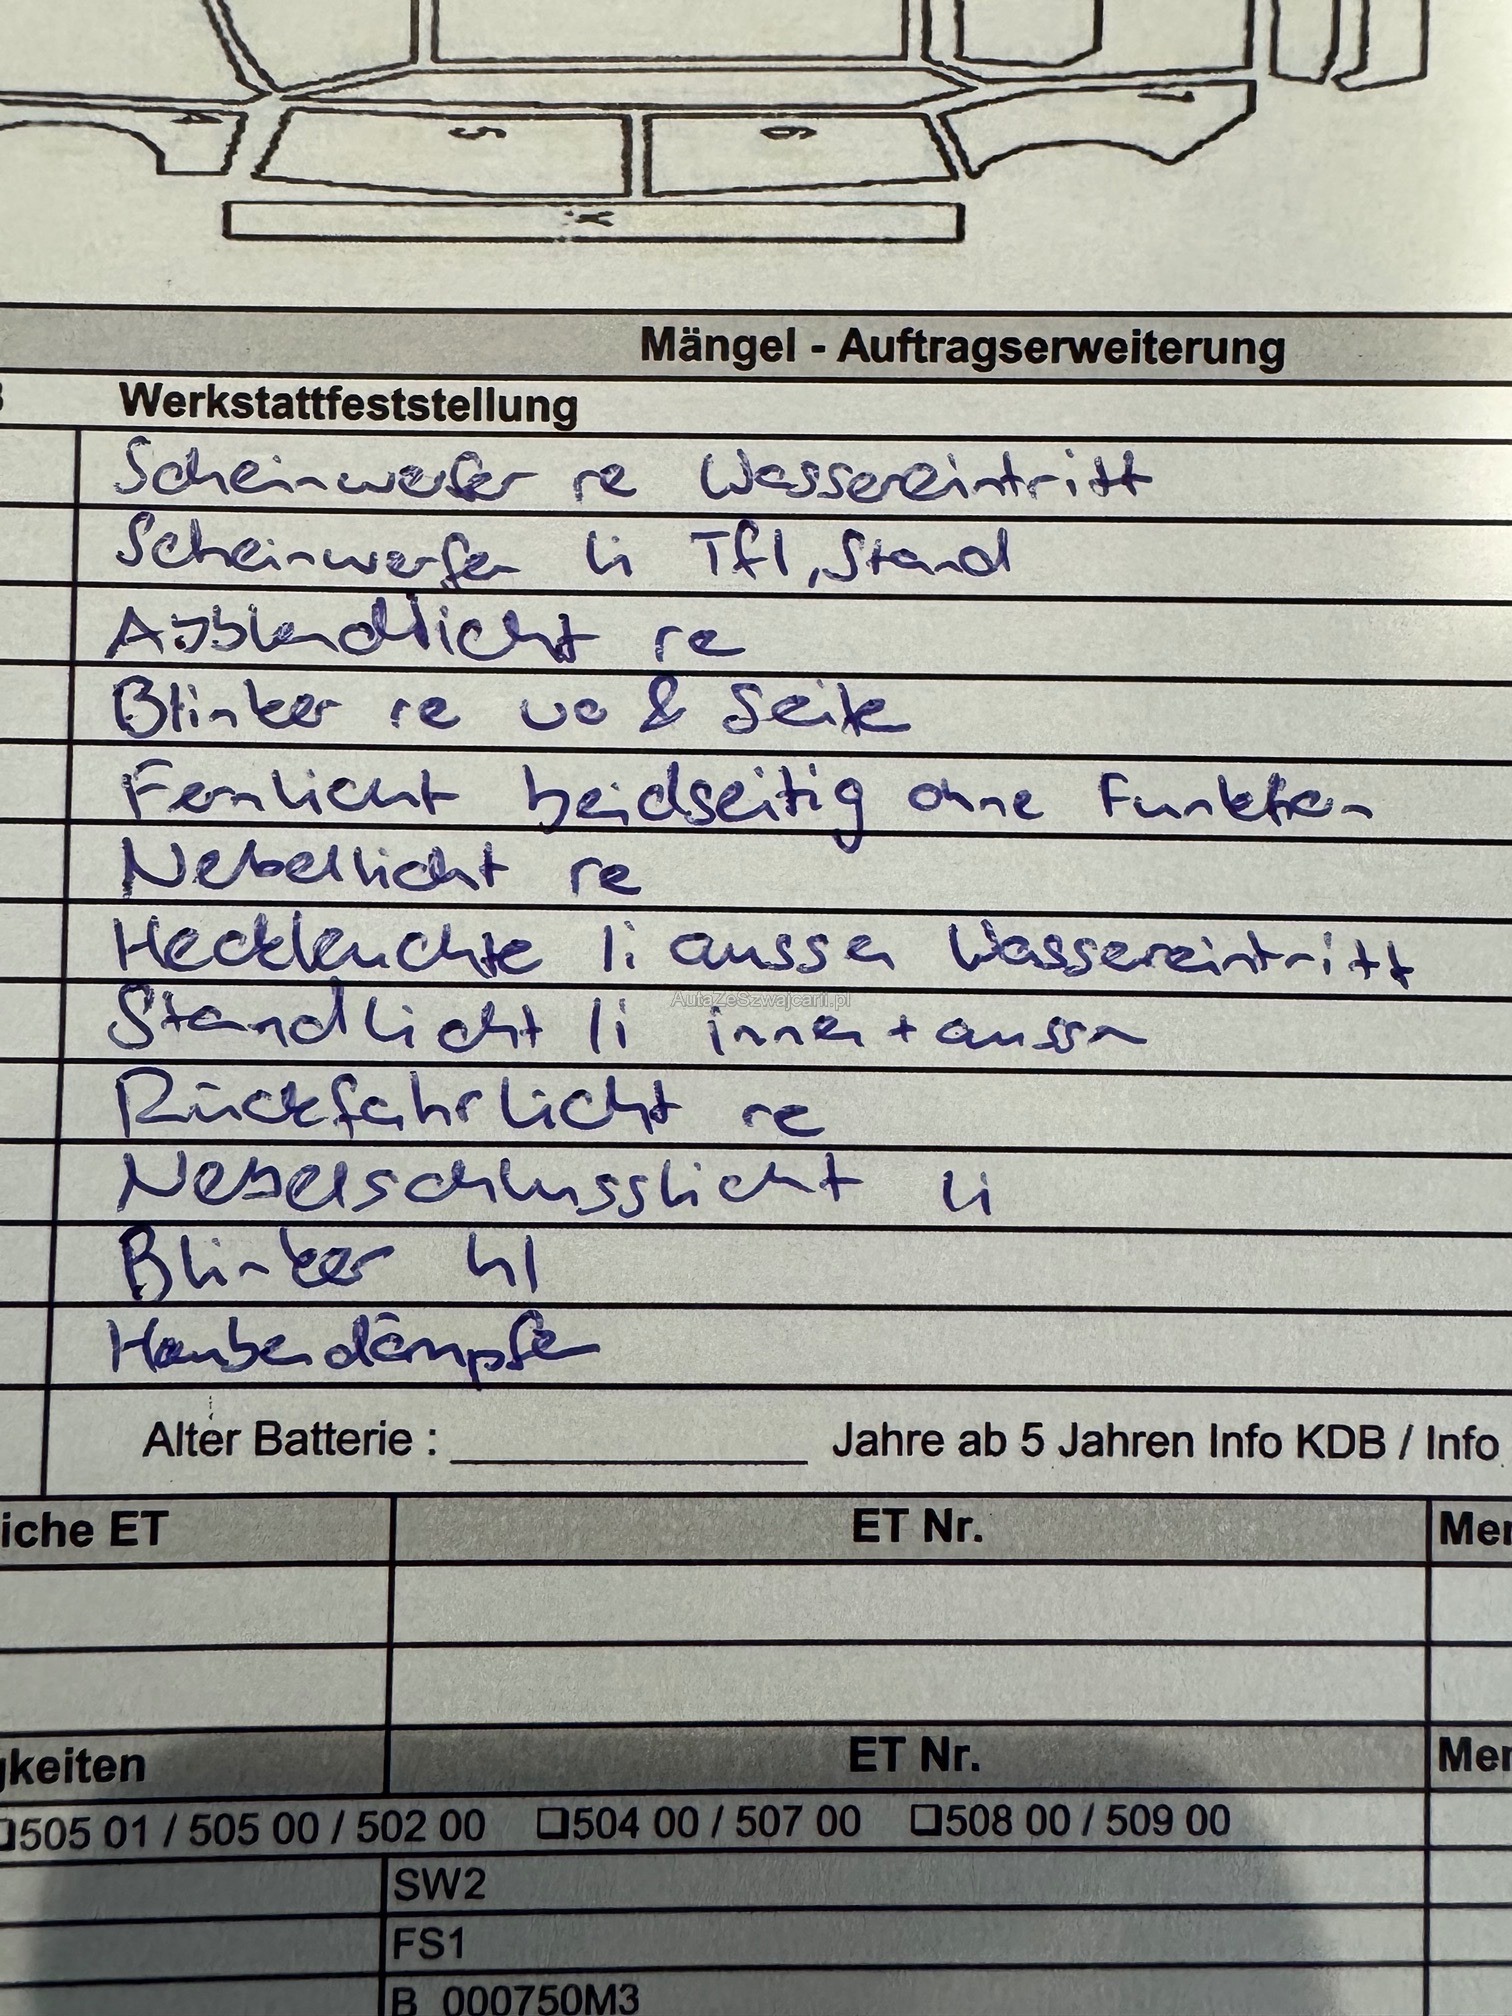 4
5
6
7
X
Mängel - Auftragserweiterung
Werkstattfeststellung
Scheinwerfer re Wassereintritt
Scheinwerfer li Tfl, Stand
Abblendlicht re
Blinker re vo & Seite
Fernlicht beidseitig ohne Funktion
Nebellicht re
Heckleuchte li aussen Wassereintritt
AutaZeSzwajcarii.pl
Standlicht li innen + aussen
Rückfahrlicht re
Nebelschlusslicht li
Blinker hl
Haubendämpfer
Alter Batterie : ____________ Jahre ab 5 Jahren Info KDB / Info
iche ET ET Nr. Mer
gkeiten ET Nr. Mer
❑505 01 / 505 00 / 502 00 ❑504 00 / 507 00 ❑508 00 / 509 00
SW2
FS1
B 000750M3